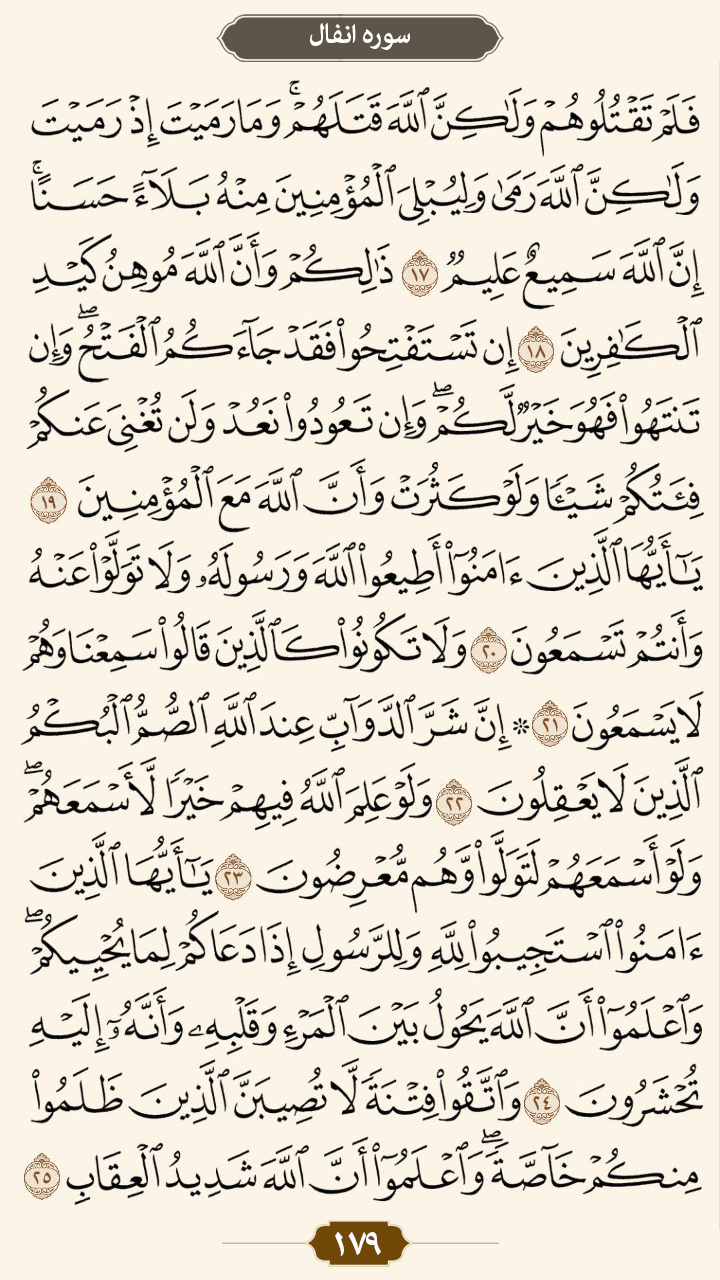 سوره انفال
فَلَمْ تَقْتُلُوهُمْ وَلَٰكِنَّ ٱللَّهَ قَتَلَهُمْۚ وَمَا رَمَيْتَ إِذْ رَمَيْتَ
وَلَٰكِنَّ ٱللَّهَ رَمَىٰ وَلِيُبْلِيَ ٱلْمُؤْمِنِينَ مِنْهُ بَلَآءً حَسَنًاۚ
إِنَّ ٱللَّهَ سَمِيعٌ عَلِيمٌ ١٧ ذَٰلِكُمْ وَأَنَّ ٱللَّهَ مُوهِنُ كَيْدِ
ٱلْكَٰفِرِينَ ١٨ إِن تَسْتَفْتِحُوا۟ فَقَدْ جَآءَكُمُ ٱلْفَتْحُۖ وَإِن
تَنتَهُوا۟ فَهُوَ خَيْرٌ لَّكُمْۖ وَإِن تَعُودُوا۟ نَعُدْ وَلَن تُغْنِيَ عَنكُمْ
فِئَتُكُمْ شَيْـًٔا وَلَوْ كَثُرَتْ وَأَنَّ ٱللَّهَ مَعَ ٱلْمُؤْمِنِينَ ١٩
يَٰٓأَيُّهَا ٱلَّذِينَ ءَامَنُوٓا۟ أَطِيعُوا۟ ٱللَّهَ وَرَسُولَهُۥ وَلَا تَوَلَّوْا۟ عَنْهُ
وَأَنتُمْ تَسْمَعُونَ ٢٠ وَلَا تَكُونُوا۟ كَٱلَّذِينَ قَالُوا۟ سَمِعْنَا وَهُمْ
لَا يَسْمَعُونَ ٢١ ۞ إِنَّ شَرَّ ٱلدَّوَآبِّ عِندَ ٱللَّهِ ٱلصُّمُّ ٱلْبُكْمُ
ٱلَّذِينَ لَا يَعْقِلُونَ ٢٢ وَلَوْ عَلِمَ ٱللَّهُ فِيهِمْ خَيْرًا لَّأَسْمَعَهُمْۖ
وَلَوْ أَسْمَعَهُمْ لَتَوَلَّوا۟ وَّهُم مُّعْرِضُونَ ٢٣ يَٰٓأَيُّهَا ٱلَّذِينَ
ءَامَنُوا۟ ٱسْتَجِيبُوا۟ لِلَّهِ وَلِلرَّسُولِ إِذَا دَعَاكُمْ لِمَا يُحْيِيكُمْۖ
وَٱعْلَمُوٓا۟ أَنَّ ٱللَّهَ يَحُولُ بَيْنَ ٱلْمَرْءِ وَقَلْبِهِۦ وَأَنَّهُۥٓ إِلَيْهِ
تُحْشَرُونَ ٢٤ وَٱتَّقُوا۟ فِتْنَةً لَّا تُصِيبَنَّ ٱلَّذِينَ ظَلَمُوا۟
مِنكُمْ خَآصَّةًۖ وَٱعْلَمُوٓا۟ أَنَّ ٱللَّهَ شَدِيدُ ٱلْعِقَابِ ٢٥
١٧٩